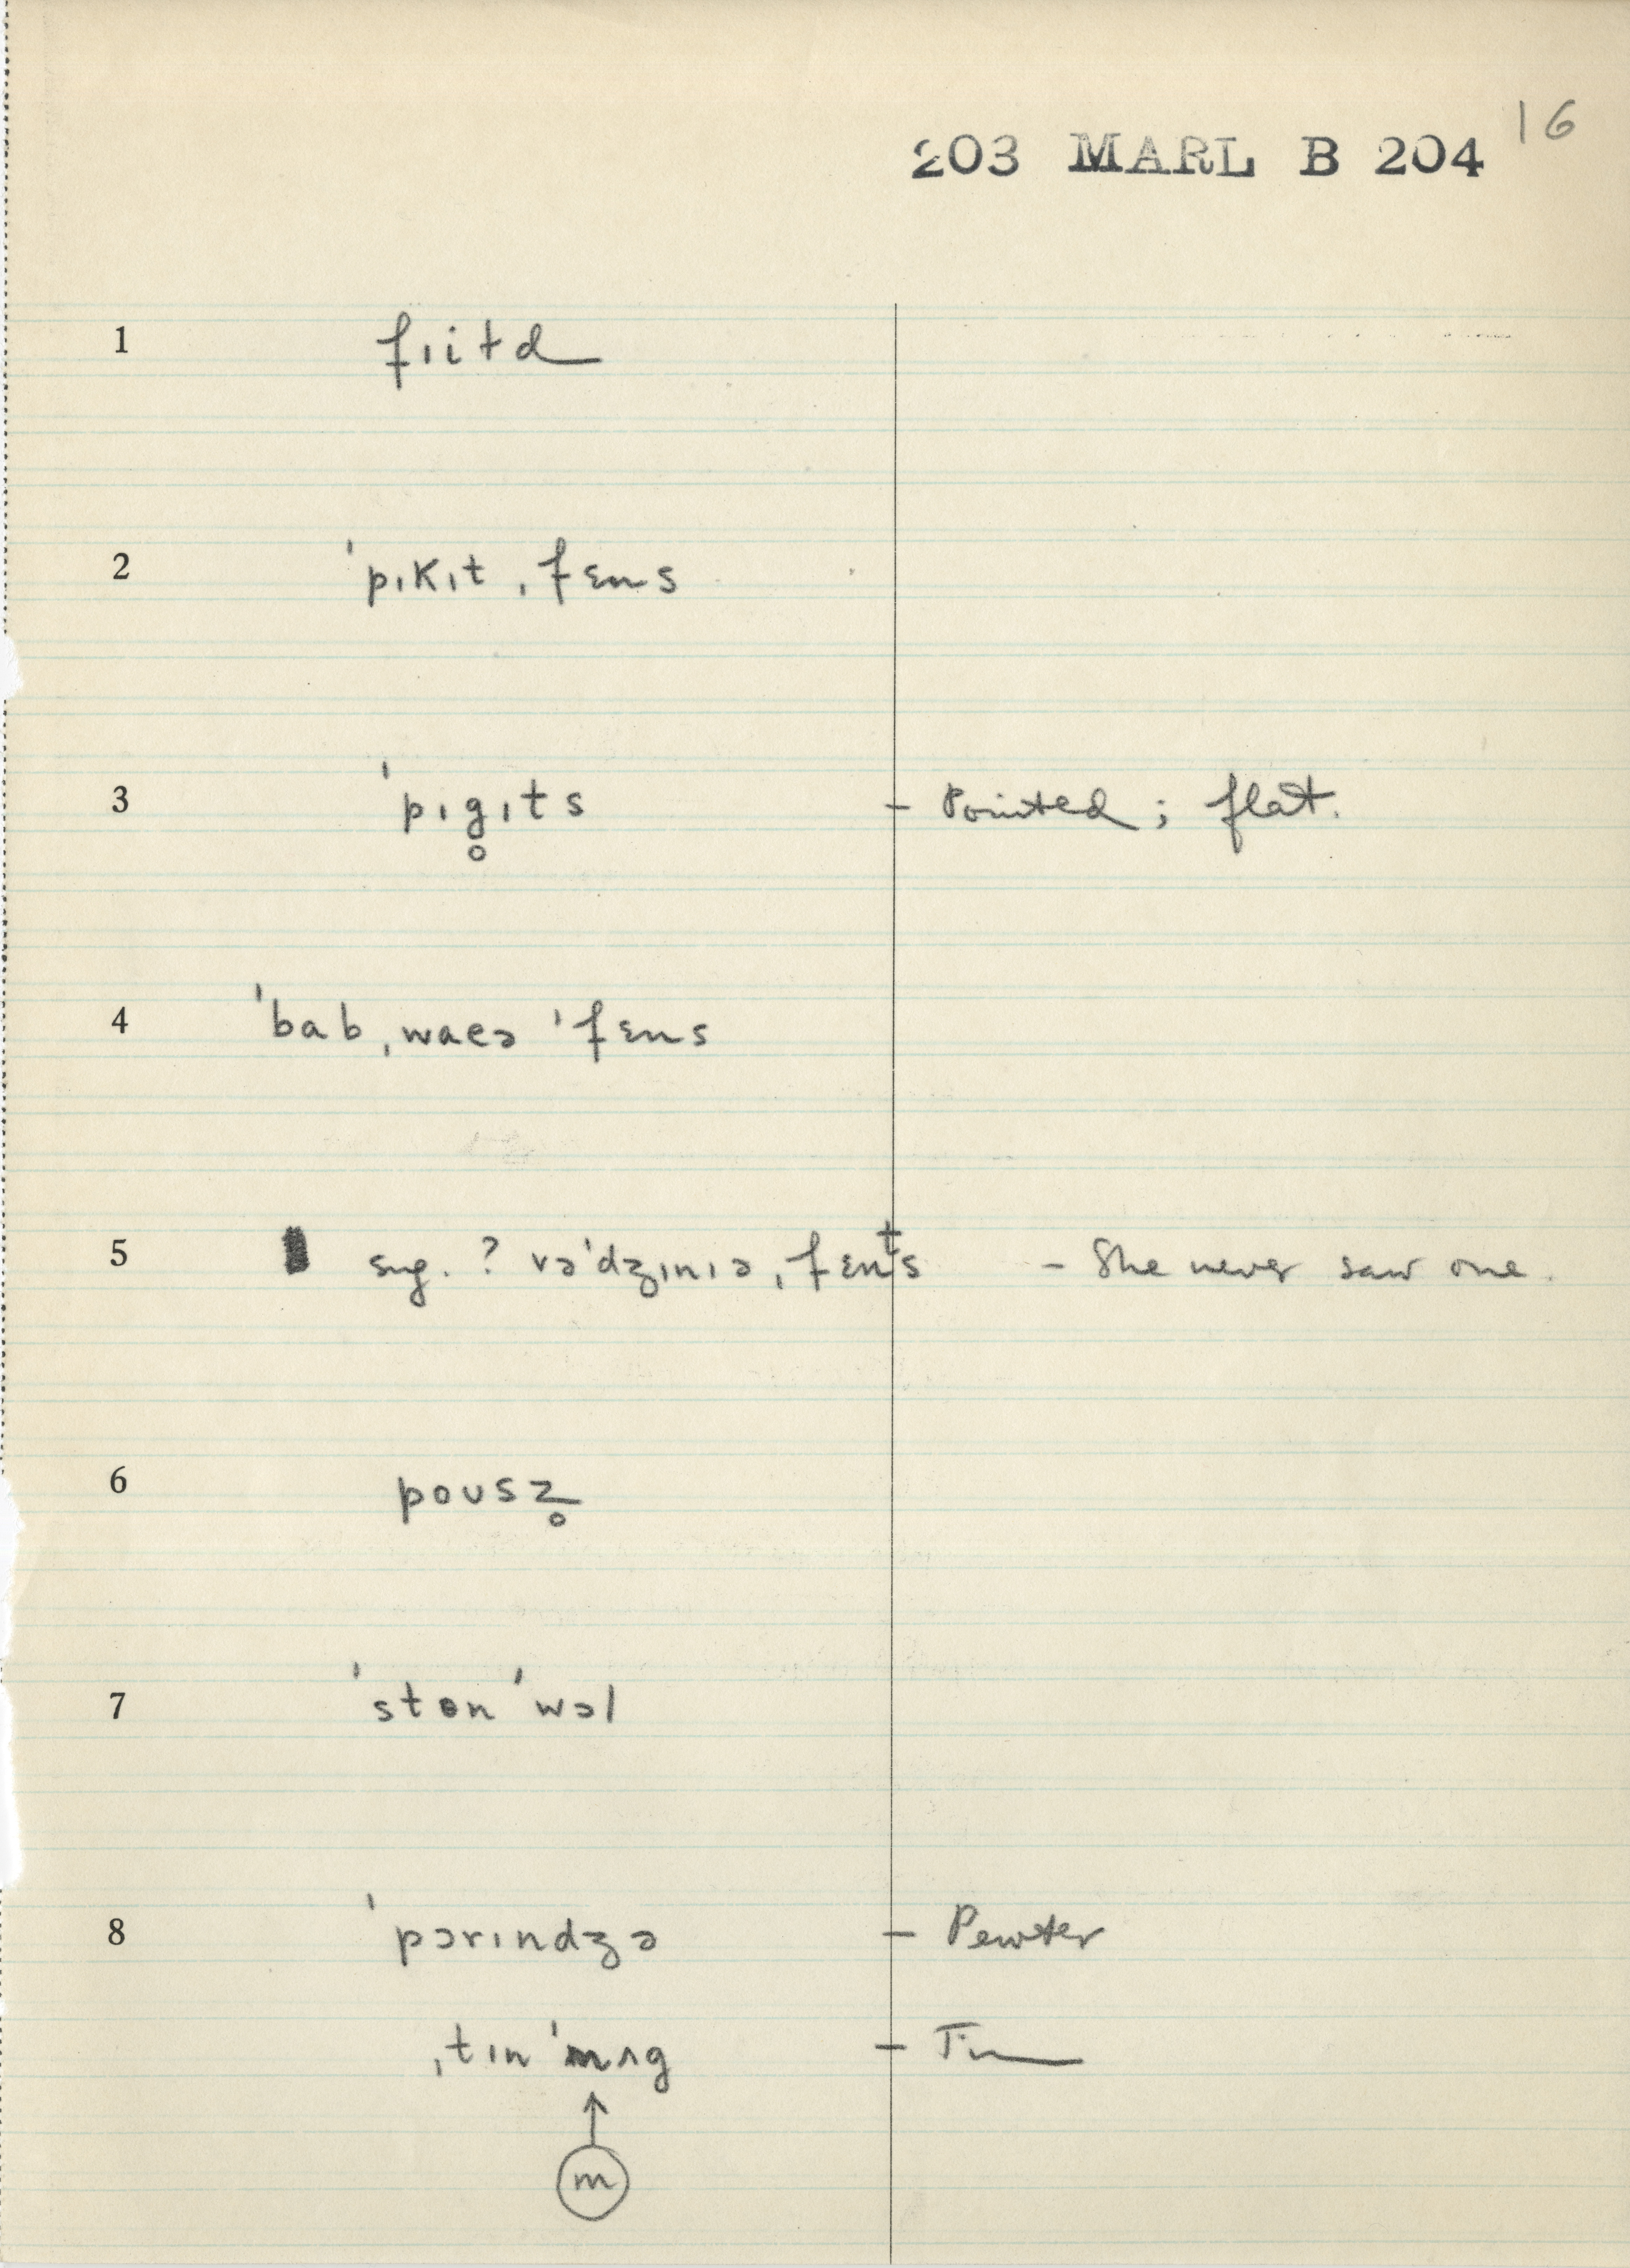 16
203 MARL B 204
1 fıitd
2 ˈpıkıt ˌfɛns
3 ˈpıg̥ıts – Pointed; flat.
4 ˈbabˌwaeə ˈfɛns
5 sug. ? vəˈdʒınıə ˌfɛnᵗs – She never saw one.
6 poʊsz̥
7 ˈstɵn ˈwɔl
8 ˈpɔrındʒə – Pewter
ˌtın ˈmʌg – Tin
↑
m